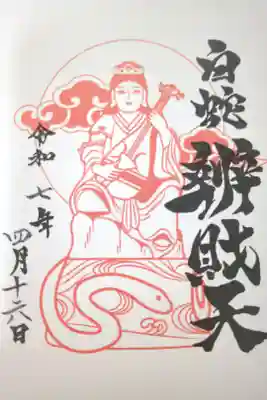 白蛇辨財天
令和七年
四月十六日